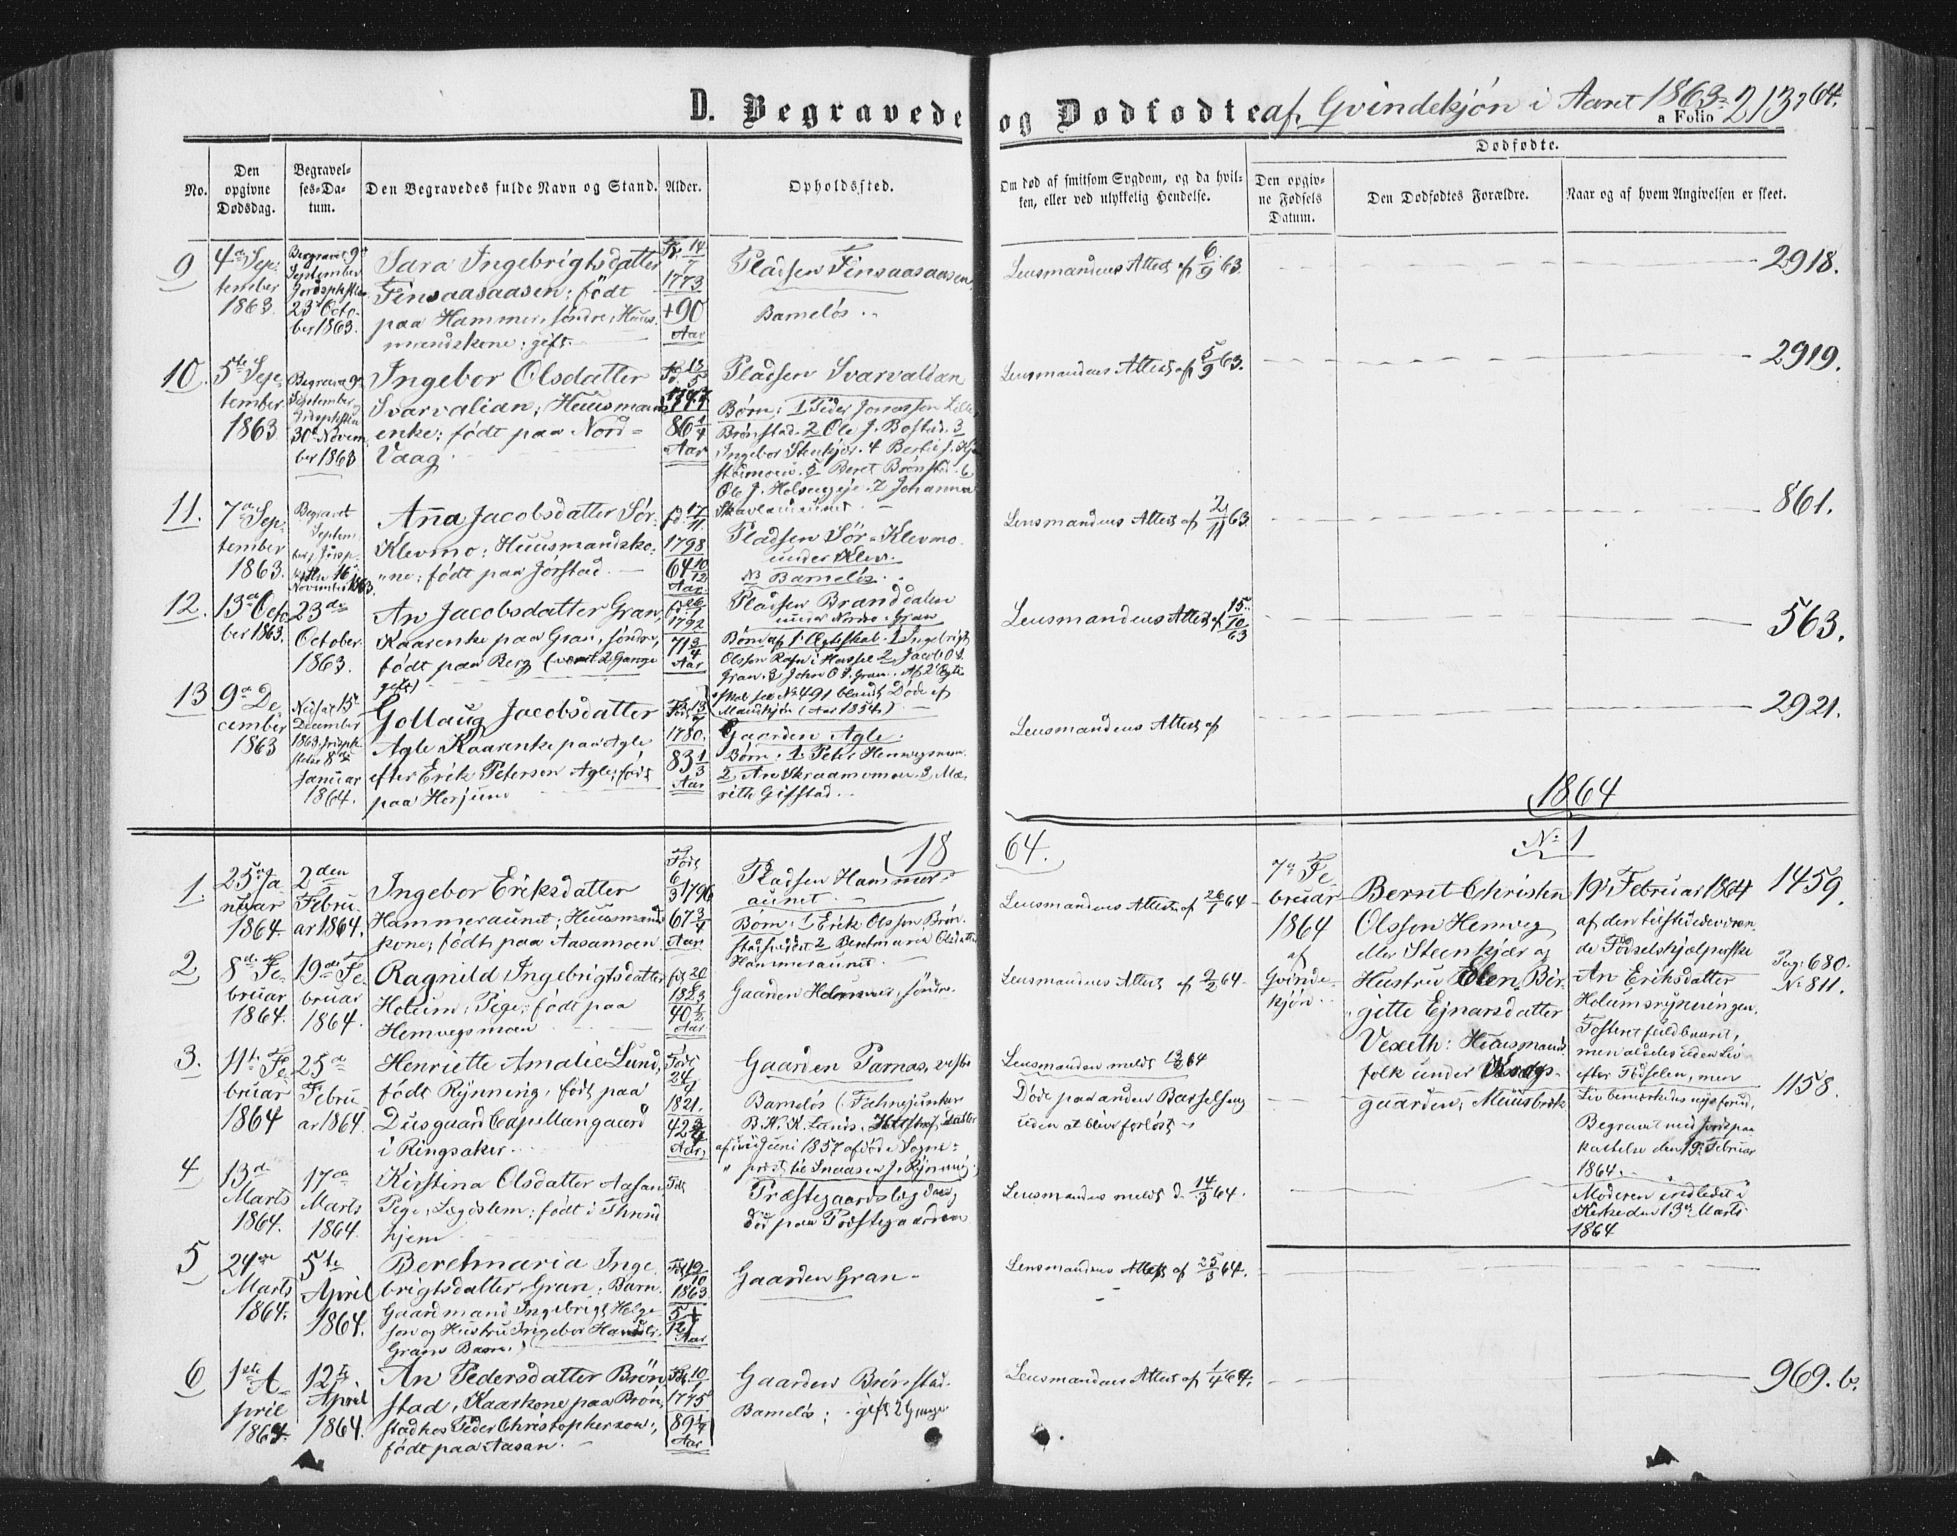 D. Begravede og Dødfødte af Qvindekjön i Aaret 1863 - 64.
a Folio 213
No.
Den opgivne Dødsdag.
Begravel-
ses-Da-
tum.
Den Begravedes fulde Navn og Stand.
Alder.
Opholdssted.
Om død af smitsom Sygdom, og da hvil-
ken, eller ved ulykkelig Hendelse.
Dødfødte.
Den opgiv-
ne Fødsels
Datum.
Den Dødfødtes Forældre.
Naar og af hvem Angivelsen er skeet.
9
4de Sep-
tember
1863.
Begravet 9de
September
Jordspaastet
23de Octo-
ber 1863.
Sara Ingebrigtsdatter
Finsaasaasen; født
paa Hammer, søndre, Huus-
mandskone; gift.
14
7
1773
+90
Aar
Pladsen Finsaasaasen,
Bamelös.
Lensmandens Attest af 6/9 63.
2918.
10.
5te Sep-
tember
1863
September
30te Novem-
ber 1863
Ingebor Olsdatter
Svarvalian; Huusmands
enke; født paa Nord-
Vaag.
13
5
86 1/4
Aar
Pladsen Svarvalian
Børn: 1 Peder Jonassen Lille
Brønstad. 2 Ole J. Bostad. 3
Ingebor Steenkjer. 4
5 Beret Brønstad. 6
Ole J. 7 Johanna
Lensmandens Attest af 5/9 63.
2919.
11.
7de Sep-
tember
1863.
Begravet
Septem-
ber,
16de
November 1863.
Ana Jacobsdatter Sör-
Klevmo; Huusmandsko-
ne; født paa Jørstad.
17
11
1798
64 10/12
Aar
Pladsen Sör-Klevmo
under Klev.
Bamelös.
Lensmandens Attest af 2/11 63
861.
12.
13de Octo-
ber 1863.
23de
October
1863.
An Jacobsdatter Gran,
Kaarenke paa Gran, søndre,
født paa Berg (været 2 Gange
gift)
1792
71 3/4
Aar
Pladsen Branddalen
under Gran
Børn af 1ste Ægteskab. 1 Ingebrigt
Olsson 2 Jacob O.
Gran. 3 John O. Gran. Af 2de Ægte-
skab see No 491 blandt Døde af
Mandkjön (Aar 1854)
Lensmandens Attest af 15/10 63
563.
13
9de De-
cember
1863
15de
December
1863.
8de
Januar
1864.
Gollaug Jacobsdatter
Agle Kaarenke paa Agle
efter Erik Petersen Agle; født
paa Herjum
13
1780.
83 1/3
Aar
Gaarden Agle.
Børn. 1. Peter Hemvegsmoen
2 An Skraamomoen. 3 Ma-
rith Gifstad.
Lensmandens Attest af
2921.
1864
1864.
No 1
1
25de Ja-
nuar
1864.
2den
Februar
1864.
Ingebor Eriksdatter
Hammeraunet; Huusmands
kone; født paa Aasamoen.
Født
6
3 1796
67 3/4
Aar
Pladsen Hammer-
aunet.
Børn: 1 Erik Olsson Brøn-
2 Beretmaria Olsdatter
Hammeraunet.
Lensmandens Attest af 26/1 64
7de Fe-
bruar
1864
af
Qvinde-
kjön.
Bernt Christen
Olsson Hemveg
eller Steenkjær og
Hustru Elen Bir-
gitte Ejnarsdatter
Vexeth: Huusmands-
folk under
gaarden, Muusbrek
19de Februar 1864
af den tilstedeværen-
de Fødselshjelperske
An Eriksdatter
Holumsrynningen,
Fosteret fuldbaaret,
men aldeles uden Liv
efter Fødselen, men
Liv bemærkedes nys forud,
Begravet med Jordspaa-
kastelse den 19de Februar
1864.
Moderen indledet i
Kirke den 13de Marts
1864
1459.
2
8de Fe-
bruar
1864.
19de Fe-
bruar
1864.
Ragnild Ingebrigtsdatter
Holum; Pige; født paa
Hemvegsmoen
20
1823
40 1/2
Aar
Gaarden Holum, søndre.
Lensmandens Attest af 9/2 64.
Pag. 680.
No 811.
3.
11te Fe-
bruar
1864
25de
Febru-
ar 1864.
Henriette Amalie Lund,
født Rynning, født paa
Dusgaard Capellangaard
i Ringsaker.
Født
24
9
1821.
42 3/4
Aar
Gaarden Parnas, vestre
Bamelös (Fahnejunker
B. K. K. Lunds. Hustru, Datter
af i Juni 1857 afdøde Sogne-
prest til Snaasen J. Rynning
Lensmanden meldt 13/2 64
Døde paa anden Barselseng
uden at blive forløst.
1158.
4
13de
Marts
1864.
17de
Marts
1864.
Kirstina Olsdatter Aasan,
Pige, Lægdslem; født i Thrond-
hjem
Født
Præstegaardslægdens
død paa Præstegaarden
Lensmanden meldt d. 14/3 64.
5
24de
Marts
1864.
5te
April
1864.
Beretmaria Inge-
brigtsdatter Gran; Barn
Gaardmand Ingebrigt Helge-
son og Hustru Ingebor
Grans Barn.)
19
10
1863
5+
12
Aar
Gaarden Gran.
Lensmandens Attest af 25/3 64.
6
1ste A-
pril
1864.
12te
April
1864.
An Pedersdatter Brön-
stad, Kaarkone paa Brön-
stad hos Peder Christophersson,
født paa Aasan.
10
1
1775
89 1/4
Aar
Gaarden Brönstad.
Bamelös; gift 2 Gange
Lensmandens Attest af 1/4 64.
969. b.